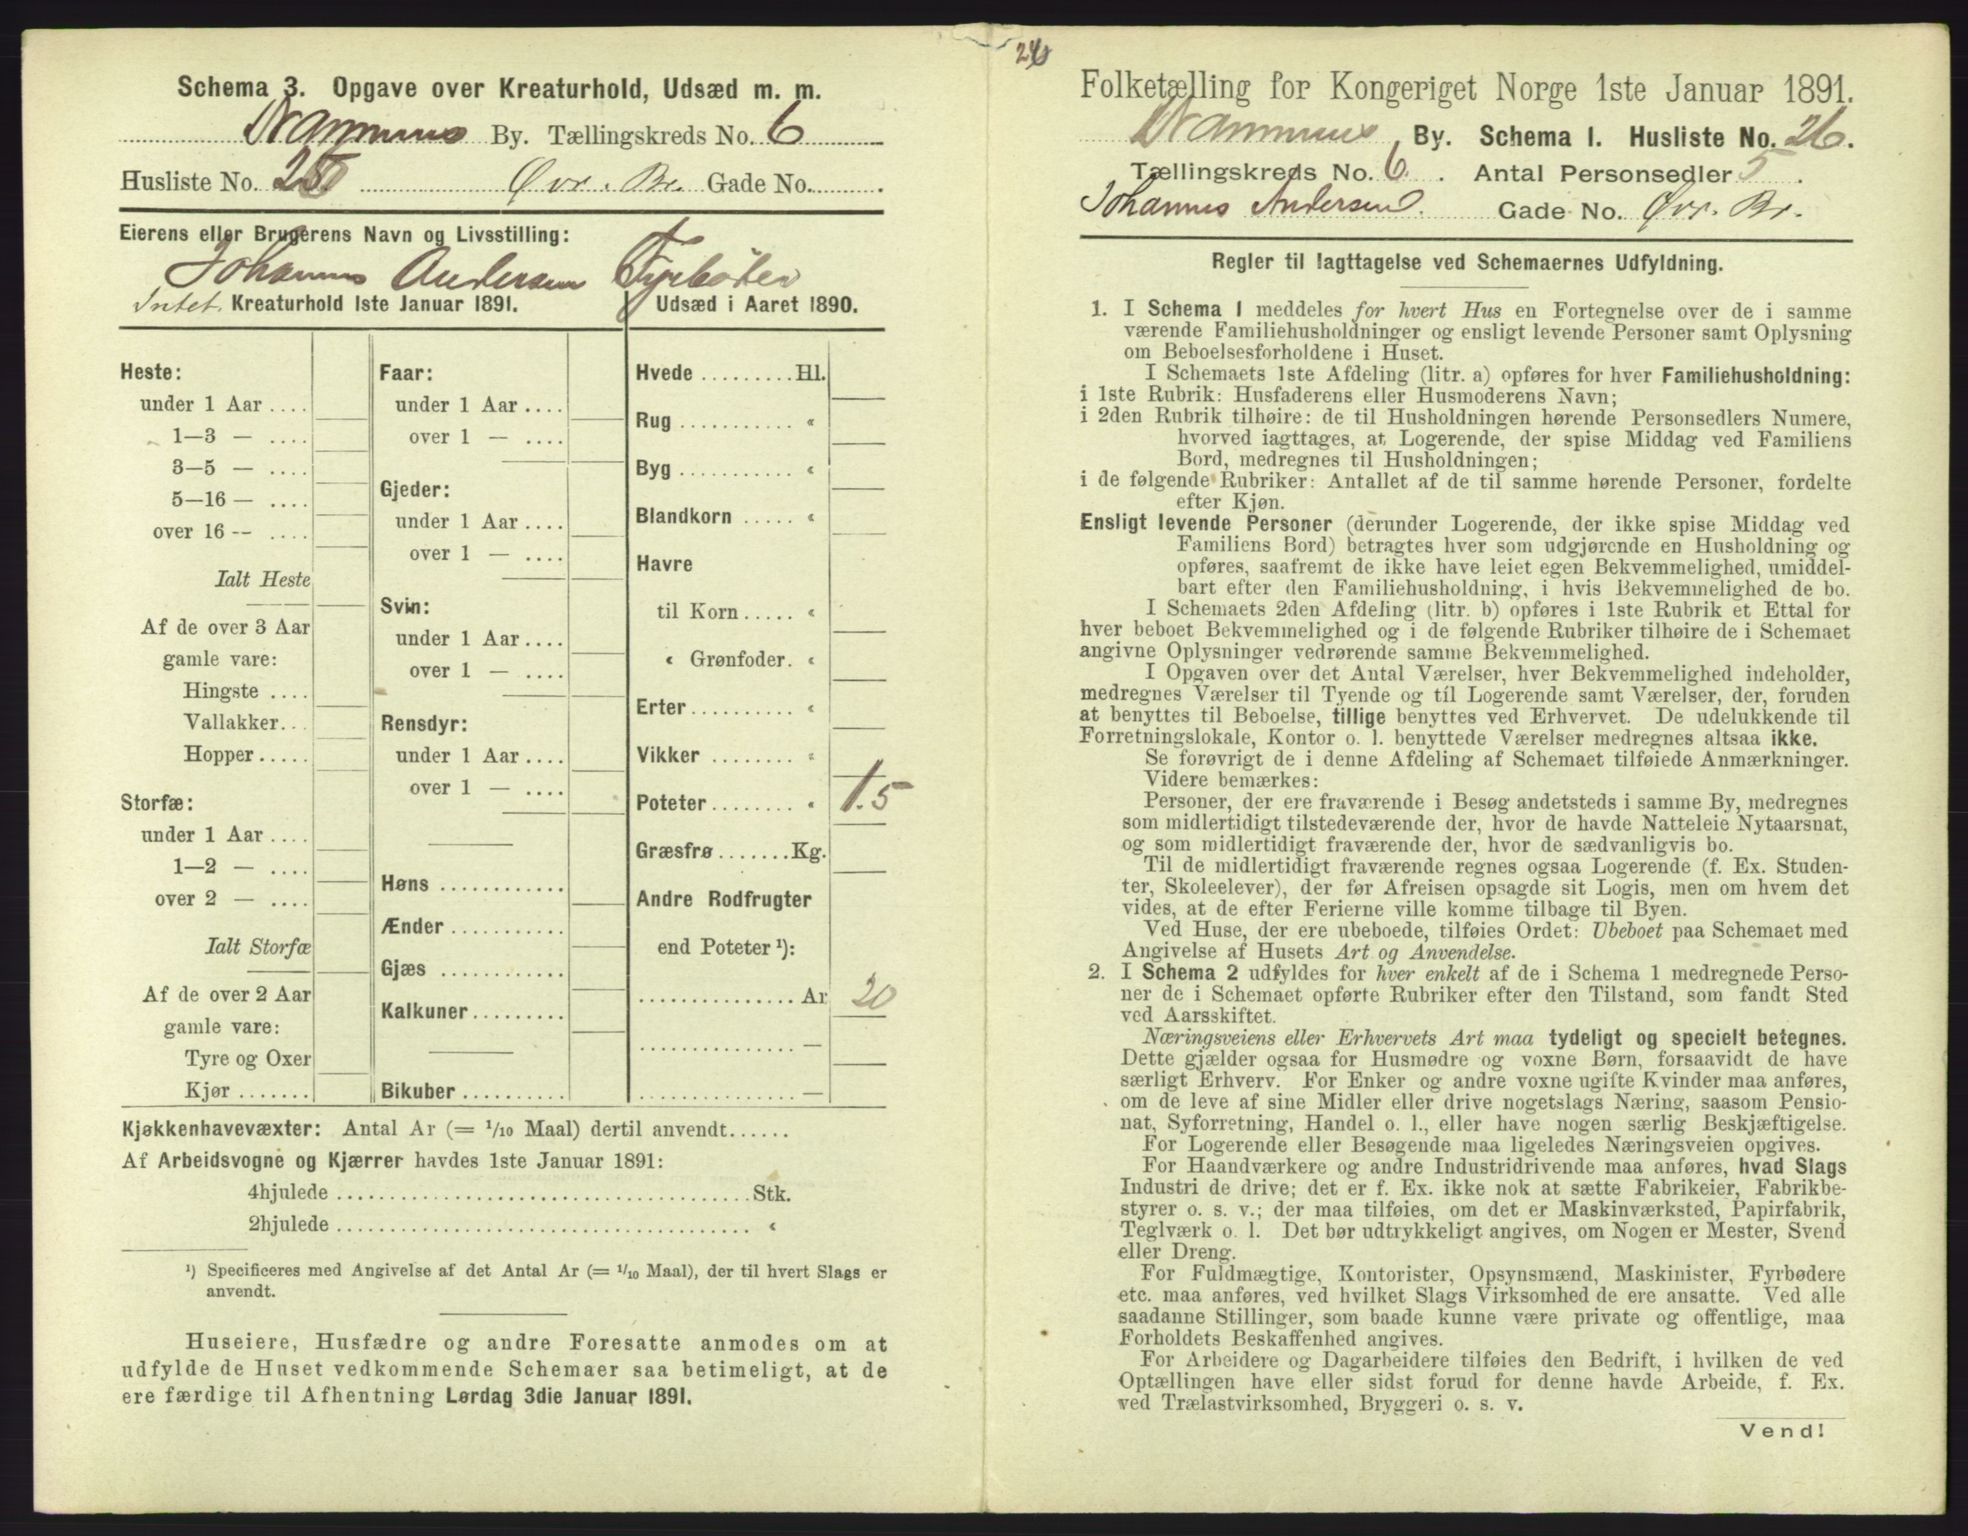 26
Schema 3. Opgave over Kreaturhold, Udsæd m. m.
Drammens By. Tællingskreds No. 6
Husliste No. Øvr. Br. Gade No.
Eierens eller Brugerens Navn og Livsstilling:
Johannes Andersen Fyrbøder
Intet. Kreaturhold 1ste Januar 1891.
Heste:
under 1 Aar ....
1—3 — ....
3—5 — ....
5—16 — ....
over 16 -- ....
Ialt Heste
Af de over 3 Aar
gamle vare:
Hingste ....
Vallakker...
Hopper.....
Storfæ:
under 1 Aar ....
1—2 — ....
over 2 — ....
Ialt Storfæ
Af de over 2 Aar
gamle vare:
Tyre og Oxer
Kjør .......
Faar:
under 1 Aar ....
over 1 — ....
Gjeder:
under 1 Aar ....
over 1 — ....
Svin:
under 1 Aar ....
over 1 — ....
Rensdyr:
under 1 Aar ....
over 1 — ....
Høns ............
Ænder ...........
Gjæs ............
Kalkuner.........
Bikuber ..........
Udsæd i Aaret 1890.
Hvede .........Hl.
Rug ........... «
Byg ........... «
Blandkorn ..... «
Havre
til Korn..... «
« Grønfoder. «
Erter.......... «
Vikker ........ «
Poteter........ « 1.5
Græsfrø .......Kg.
Andre Rodfrugter
end Poteter ¹):
................Ar 20
................—
................—
Kjøkkenhavevæxter: Antal Ar (= 1/10 Maal) dertil anvendt......
Af Arbeidsvogne og Kjærrer havdes 1ste Januar 1891:
4hjulede ........................................Stk.
2hjulede ........................................ «
¹) Specificeres med Angivelse af det Antal Ar (= 1/10 Maal), der til hvert Slags er
anvendt.
Huseiere, Husfædre og andre Foresatte anmodes om at
udfylde de Huset vedkommende Schemaer saa betimeligt, at de
ere færdige til Afhentning Lørdag 3die Januar 1891.
Folketælling for Kongeriget Norge 1ste Januar 1891.
Drammens By. Schema I. Husliste No. 26.
Tællingskreds No. 6. Antal Personsedler 5.
Johannes Andersen. Gade No. Øvr. Br.
Regler til Iagttagelse ved Schemaernes Udfyldning.
1. I Schema I meddeles for hvert Hus en Fortegnelse over de i samme
værende Familiehusholdninger og ensligt levende Personer samt Oplysning
om Beboelsesforholdene i Huset.
I Schemaets 1ste Afdeling (litr. a) opføres for hver Familiehusholdning:
i 1ste Rubrik: Husfaderens eller Husmoderens Navn;
i 2den Rubrik tilhøire: de til Husholdningen hørende Personsedlers Numere,
hvorved iagttages, at Logerende, der spise Middag ved Familiens
Bord, medregnes til Husholdningen;
i de følgende Rubriker: Antallet af de til samme hørende Personer, fordelte
efter Kjøn.
Ensligt levende Personer (derunder Logerende, der ikke spise Middag ved
Familiens Bord) betragtes hver som udgjørende en Husholdning og
opføres, saafremt de ikke have leiet egen Bekvemmelighed, umiddel-
bart efter den Familiehusholdning, i hvis Bekvemmelighed de bo.
I Schemaets 2den Afdeling (litr. b) opføres i 1ste Rubrik et Ettal for
hver beboet Bekvemmelighed og i de følgende Rubriker tilhøire de i Schemaet
angivne Oplysninger vedrørende samme Bekvemmelighed.
I Opgaven over det Antal Værelser, hver Bekvemmelighed indeholder,
medregnes Værelser til Tyende og til Logerende samt Værelser, der, foruden
at benyttes til Beboelse, tillige benyttes ved Erhvervet. De udelukkende til
Forretningslokale, Kontor o. l. benyttede Værelser medregnes altsaa ikke.
Se forøvrigt de i denne Afdeling af Schemaet tilføiede Anmærkninger.
Videre bemærkes:
Personer, der ere fraværende i Besøg andetsteds i samme By, medregnes
som midlertidigt tilstedeværende der, hvor de havde Natteleie Nytaarsnat,
og som midlertidigt fraværende der, hvor de sædvanligvis bo.
Til de midlertidigt fraværende regnes ogsaa Logerende (f. Ex. Studen-
ter, Skoleelever), der før Afreisen opsagde sit Logis, men om hvem det
vides, at de efter Ferierne ville komme tilbage til Byen.
Ved Huse, der ere ubeboede, tilføies Ordet: Ubeboet paa Schemaet med
Angivelse af Husets Art og Anvendelse.
2. I Schema 2 udfyldes for hver enkelt af de i Schema 1 medregnede Perso-
ner de i Schemaet opførte Rubriker efter den Tilstand, som fandt Sted
ved Aarsskiftet.
Næringsveiens eller Erhvervets Art maa tydeligt og specielt betegnes.
Dette gjælder ogsaa for Husmødre og voxne Børn, forsaavidt de have
særligt Erhverv. For Enker og andre voxne ugifte Kvinder maa anføres,
om de leve af sine Midler eller drive nogetslags Næring, saasom Pensio-
nat, Syforretning, Handel o. l., eller have nogen særlig Beskjæftigelse.
For Logerende eller Besøgende maa ligeledes Næringsveien opgives.
For Haandværkere og andre Industridrivende maa anføres, hvad Slags
Industri de drive; det er f. Ex. ikke nok at sætte Fabrikeier, Fabrikbe-
styrer o. s. v.; der maa tilføies, om det er Maskinværksted, Papirfabrik,
Teglværk o. l. Det bør udtrykkeligt angives, om Nogen er Mester, Svend
eller Dreng.
For Fuldmægtige, Kontorister, Opsynsmænd, Maskinister, Fyrbødere
etc. maa anføres, ved hvilket Slags Virksomhed de ere ansatte. Ved alle
saadanne Stillinger, som baade kunne være private og offentlige, maa
Forholdets Beskaffenhed angives.
For Arbeidere og Dagarbeidere tilføies den Bedrift, i hvilken de ved
Optællingen have eller sidst forud for denne havde Arbeide, f. Ex.
ved Trælastvirksomhed, Bryggeri o. s. v.
Vend!